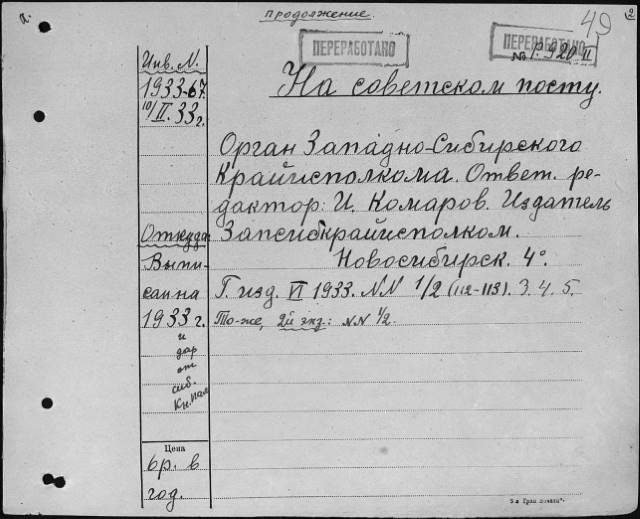 продолжение.
49
2
ПЕРЕРАБОТАНО
ПЕРЕРАБОТАНО
№ Р. 920 II
Инв. N.
1933-67.
10/II. 33 г.
На советском посту.
Орган Западно-Сибирского
Крайисполкома. Ответ. ре-
дактор: И. Комаров. Издатель
Запсибкрайисполком.
Новосибирск. 4°.
Г. изд. VI 1933. NN 1/2 (112-113). 3. 4. 5.
То-же, 2й экз: NN 1/2.
Откуда
Выпи-
сан на
1933 г.
и
дар
от
сиб.
Кн. Пал
Цена
6р. в
год.